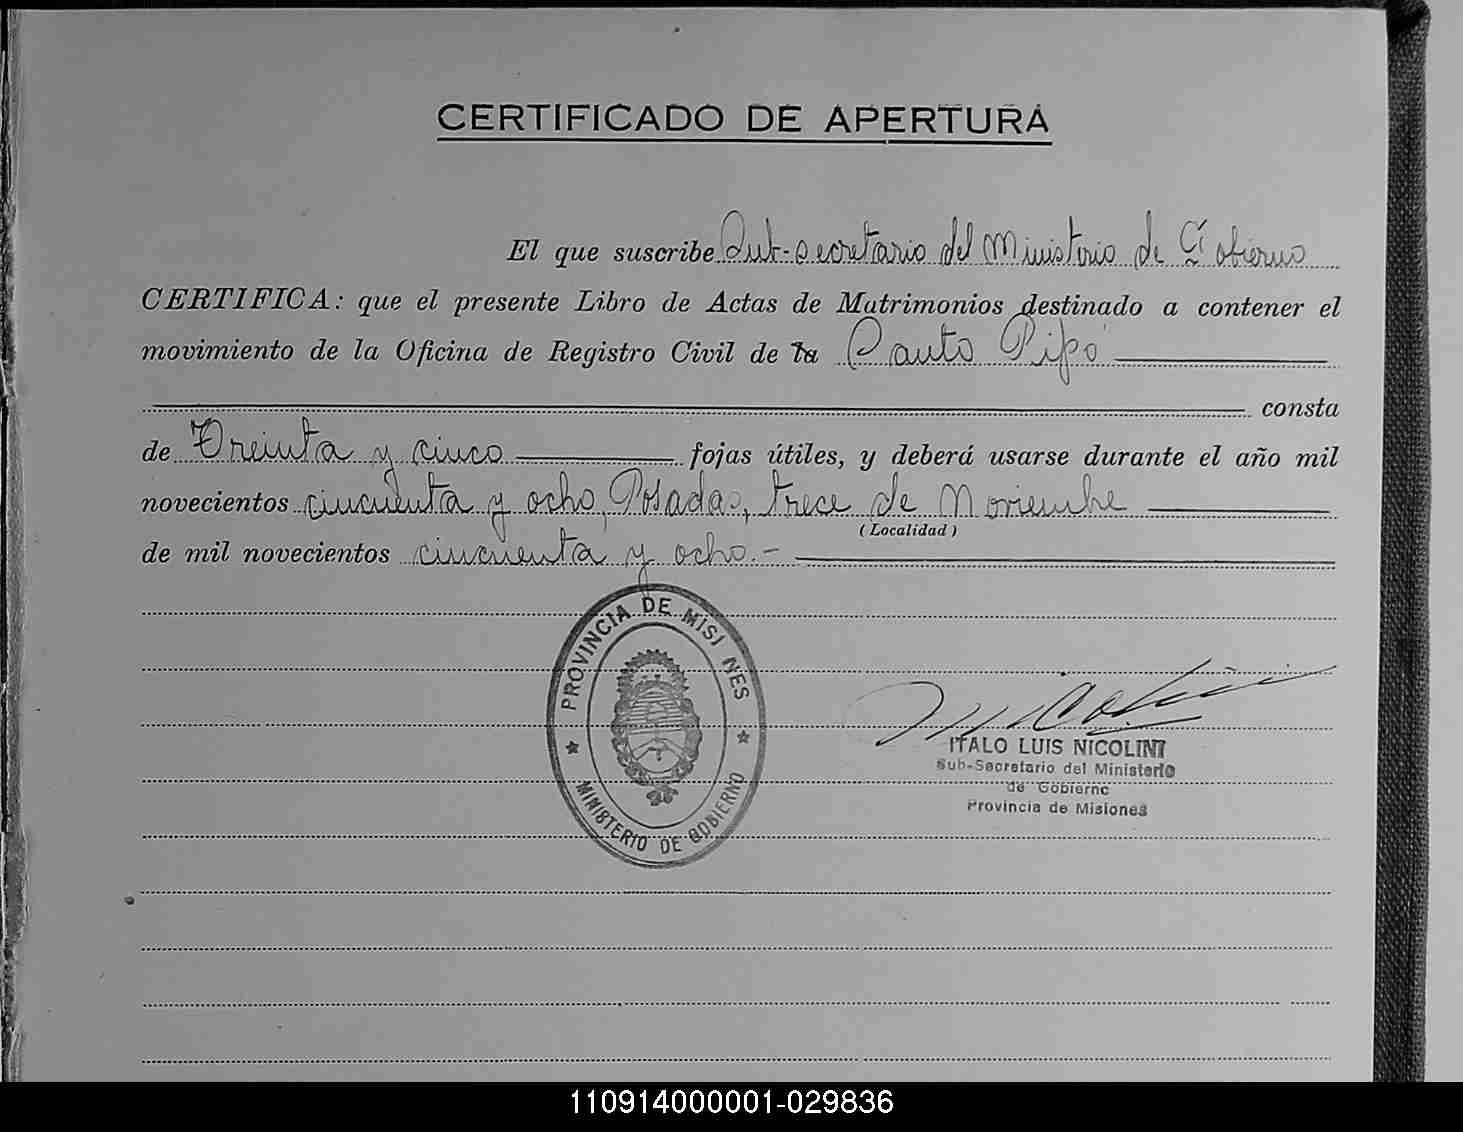 CERTIFICADO DE APERTURA
El que suscribe Sub-secretario del Ministerio de Gobierno
CERTIFICA: que el presente Libro de Actas de Matrimonios destinado a contener el
movimiento de la Oficina de Registro Civil de la Panto Pipó
consta
de Treinta y cinco fojas útiles, y deberá usarse durante el año mil
novecientos cincuenta y ocho, Posadas, trece de Noviembre
(Localidad)
de mil novecientos cincuenta y ocho.-
PROVINCIA DE MISI NES
MINISTERIO DE GOBIERNO
ITALO LUIS NICOLINI
Sub-Secretario del Ministerio
de Gobierno
Provincia de Misiones
110914000001-029836